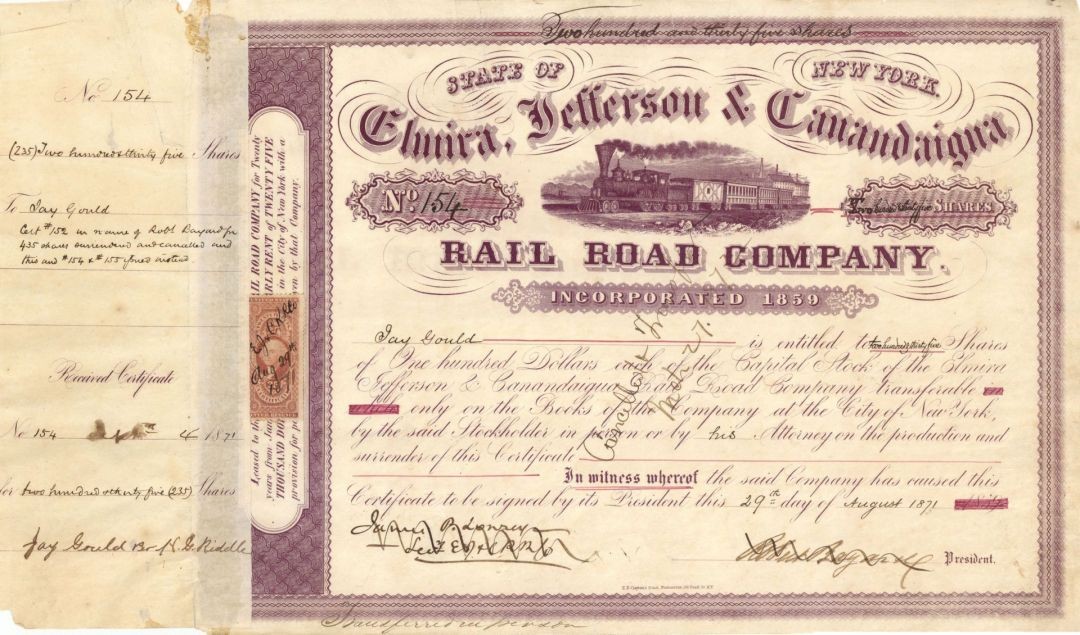 No 154
(235) Two hundred & thirty five Shares
To Jay Gould
Cert #152 in name of Robt Bayard for
435 shares surrendered and cancelled and
this and #154 & #155 issued instead
Received Certificate
No 154 4 1871
for two hundred & thirty five (235) Shares
Jay Gould Br K. G. Riddle
Leased to
years from
THOUSAND DO
provision for
RAIL ROAD COMPANY for Twenty
RLY RENT of TWENTY FIVE
in the city of New York with a
by that Company.
Aug 29th
1871
Two hundred and thirty five shares
STATE OF NEW YORK.
Elmira, Jefferson & Canandaigua
No. 154
Two hundred thirty five SHARES
RAIL ROAD COMPANY.
INCORPORATED 1859
Jay Gould is entitled to two hundred thirty five Shares
of One hundred Dollars each in the Capital Stock of the Elmira
Jefferson & Canandaigua Rail Road Company transferable
only on the Books of the Company at the City of New York,
by the said Stockholder in person or by his Attorney on the production and
surrender of this Certificate
In witness whereof the said Company has caused this
Certificate to be signed by its President this 29th day of August 1871
Cancelled
Mch 27.
Robert Bayard President.
Transferred in person